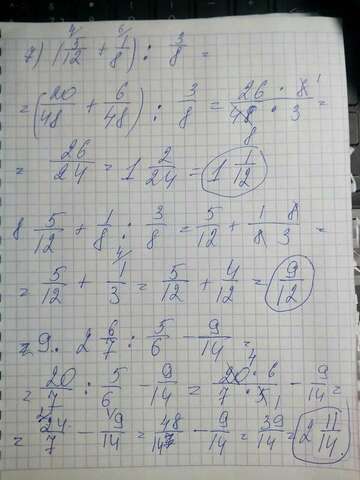 7) (5/12 + 1/8) : 3/8 =
= (20/48 + 6/48) : 3/8 = 26 · 8/48 · 3 =
= 26/24 = 1 2/24 = 1 1/12
8 5/12 + 1/8 : 3/8 = 5/12 + 1 8/8 3 =
= 5/12 + 1/3 = 5/12 + 4/12 = 9/12
9. 2 6/7 : 5/6 - 9/14 =
= 20/7 : 5/6 - 9/14 = 20 · 6/7 · 5 - 9/14 =
= 24/7 - 9/14 = 48/14 - 9/14 = 39/14 = 2 11/14